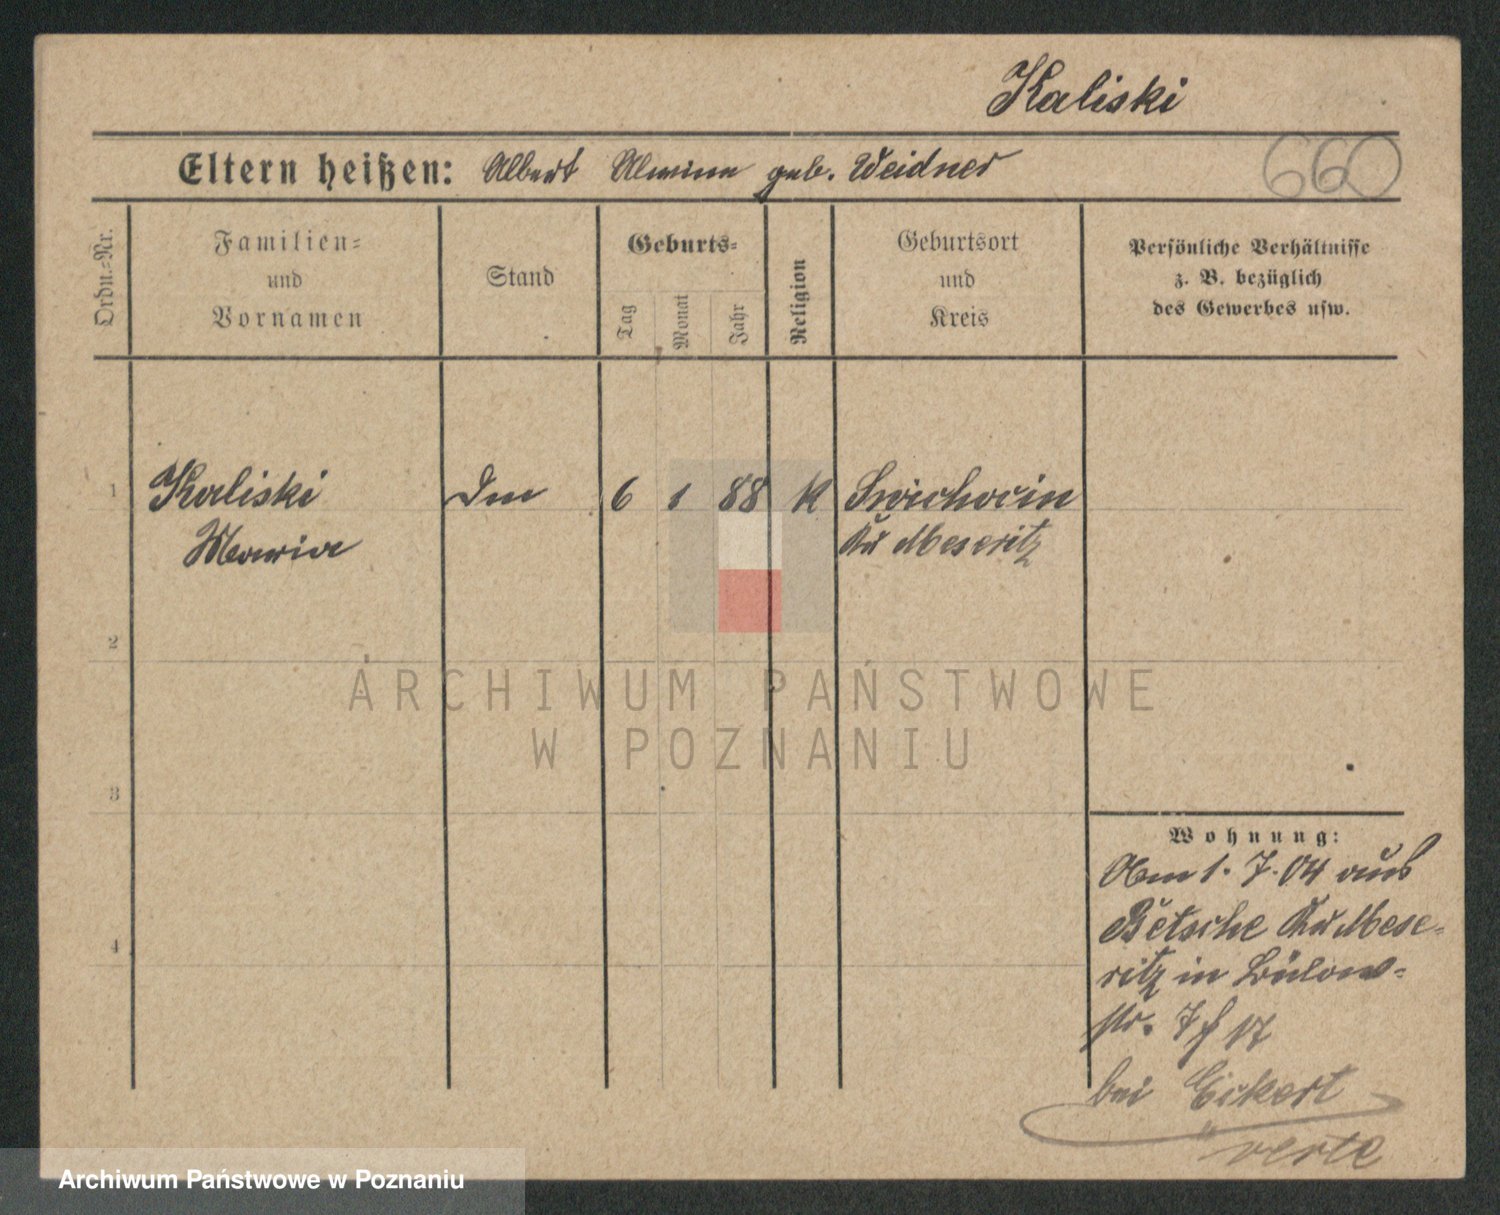 Kaliski
660
Eltern heißen: Albert Alwine geb. Weidner
Ordn.-Nr.
Familien-
und
Vornamen
Stand
Geburts-
Tag
Monat
Jahr
Religion
Geburtsort
und
Kreis
Persönliche Verhältnisse
z. B. bezüglich
des Gewerbes usw.
1 Kaliski 6 1 88 K Swichocin
Maria Kr Meseritz
2
3
4
ARCHIWUM PAŃSTWOWE
W POZNANIU
Wohnung:
Am 1. 7. 04 aus
Betsche Kr Mese-
ritz in Bülow-
str. 7
bei Eckert
verte
Archiwum Państwowe w Poznaniu